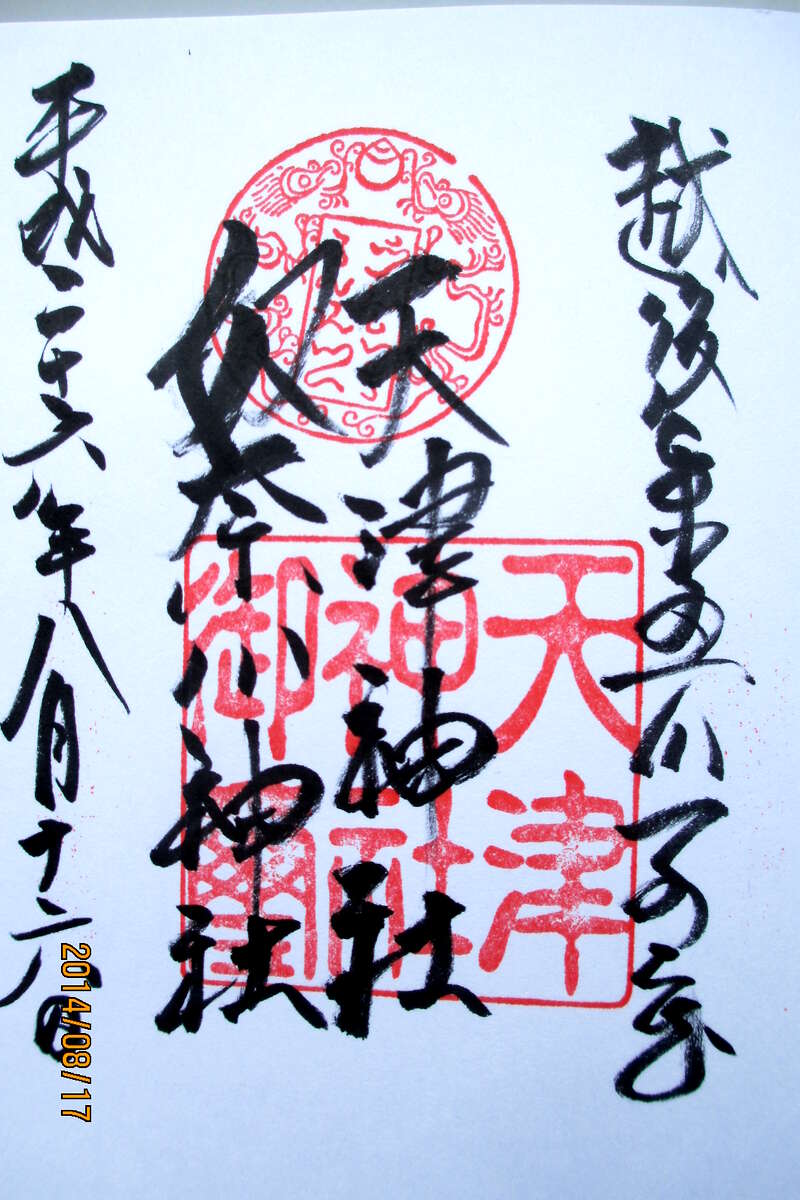 越後糸魚川
天津神社
奴奈川神社
平成二十六年八月十六日
天津神社御璽
2014/08/17